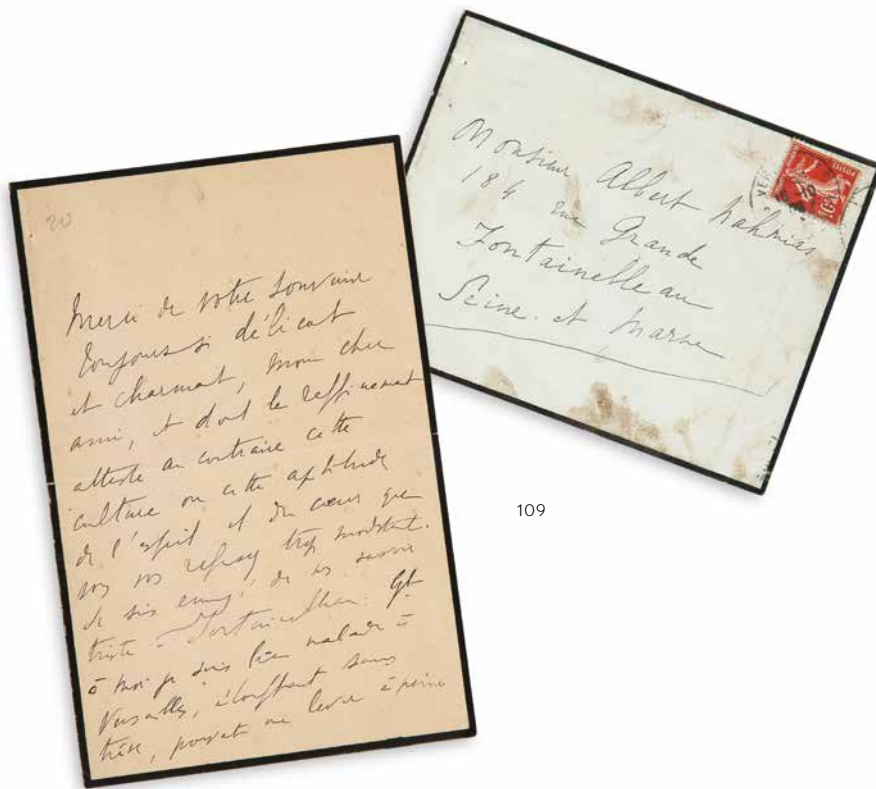 20
Merci de votre souvenir
toujours si délicat
et charmant, mon cher
ami, et dont le raffinement
atteste au contraire cette
culture ou cette aptitude
de l'esprit et du cœur que
vous vous refusez trop modestement.
Je suis ennuyé de vous savoir
triste à Fontainebleau. Qt
à moi je suis bien malade à
Versailles, étouffant sans
trêve, pouvant me lever à peine
Monsieur Albert Nahmias
184 rue Grande
Fontainebleau
Seine et Marne
POSTES
10
109